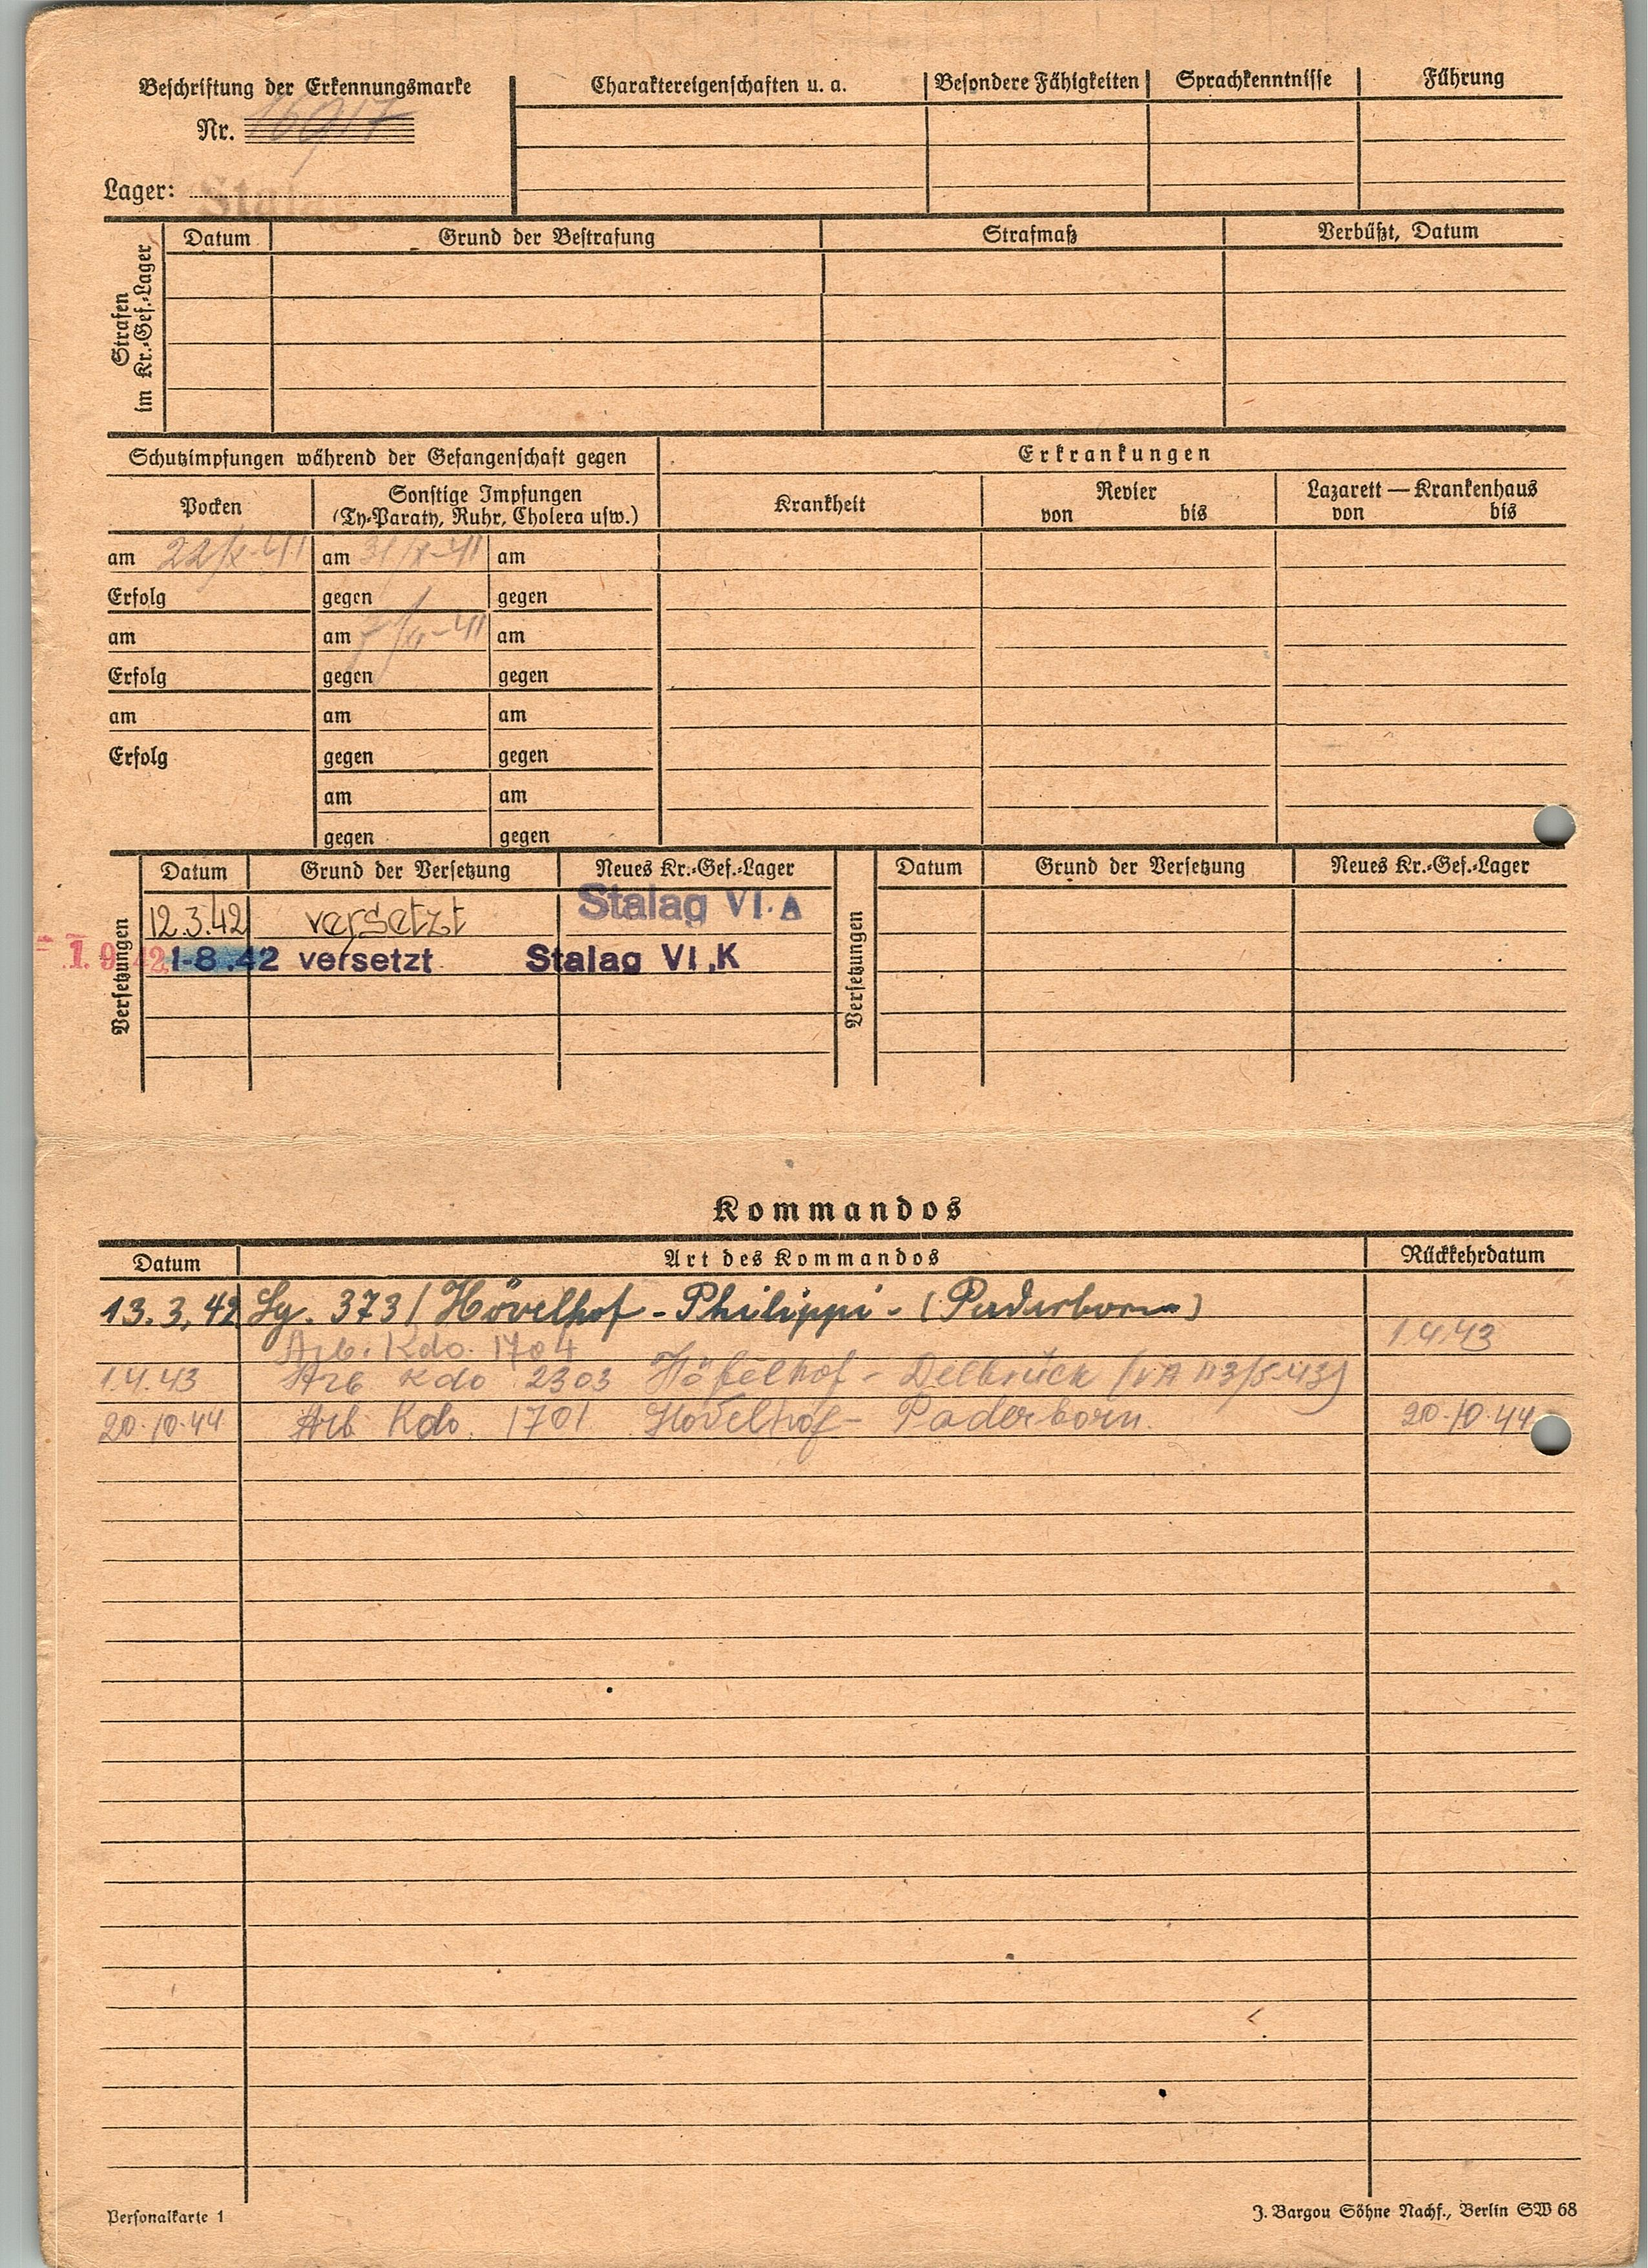 Beschriftung der Erkennungsmarke
Nr. 16917
Lager: Stalag
Charaktereigenschaften u. a.
Besondere Fähigkeiten
Sprachkenntnisse
Führung
Strafen
im Kr.-Gef.-Lager
Datum
Grund der Bestrafung
Strafmaß
Verbüßt, Datum
Schutzimpfungen während der Gefangenschaft gegen
Erkrankungen
Pocken
Sonstige Impfungen
(Ty-Paraty, Ruhr, Cholera usw.)
Krankheit
Revier
von bis
Lazarett — Krankenhaus
von bis
am 22/X-41 am 31/X-41 am
Erfolg gegen gegen
am am 7/XI-41 am
Erfolg gegen gegen
am am am
Erfolg gegen gegen
am am
gegen gegen
Versetzungen
Datum Grund der Versetzung Neues Kr.-Gef.-Lager
12.3.42 versetzt Stalag VI.A
1-8.42 versetzt Stalag VI.K
Versetzungen
Datum Grund der Versetzung Neues Kr.-Gef.-Lager
Kommandos
Datum Art des Kommandos Rückkehrdatum
13.3.42 Lg. 373 / Hövelhof - Philippi - (Paderborn)
Arb. Kdo. 1704 1.4.43
1.4.43 Arb Kdo 2303 Höfelhof - Delbrück
20.10.44 Arb. Kdo. 1701 Hövelhof - Paderborn. 20.10.44
Personalkarte 1
J. Bargou Söhne Nachf., Berlin SW 68